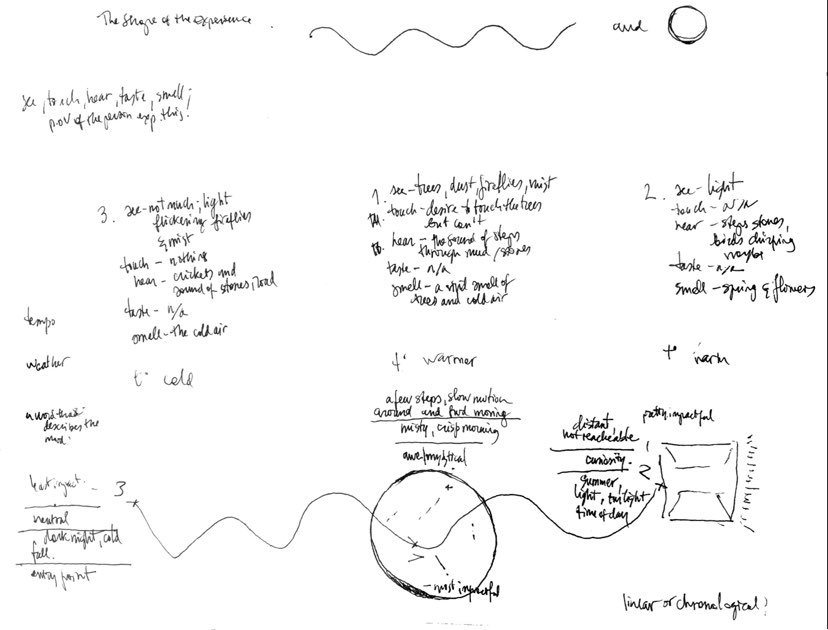 The Shape of the Experience.
and
see, touch, hear, taste, smell;
p.o.v of the person exp. this!
3. see - not much; light
flickering fireflies
& mist
touch - nothing
hear - crickets and
sound of stones, road
taste - n/a
smell - the cold air
1. see - trees, dust, fireflies, mist
touch - desire to touch the trees
but can't
hear - the sound of steps
through mud/stones
taste - n/a
smell - a smell of
trees and cold air
2. see - light
touch - n/a
hear - steps stones,
birds chirping
maybe
taste - n/a
smell - spring & flowers
tempo
weather
t° cold
t° warmer
t° warm
a word that
describes the
mood:
a few steps, slow motion
around and fwd moving
misty, crisp morning
awe/mystical
distant
not reacheable
curiosity.
summer,
light, twilight
time of day
pretty impactful
1
2
least impact. - 3
neutral
dark night, cold
fall.
entry point
- most impactful
linear or chronological?